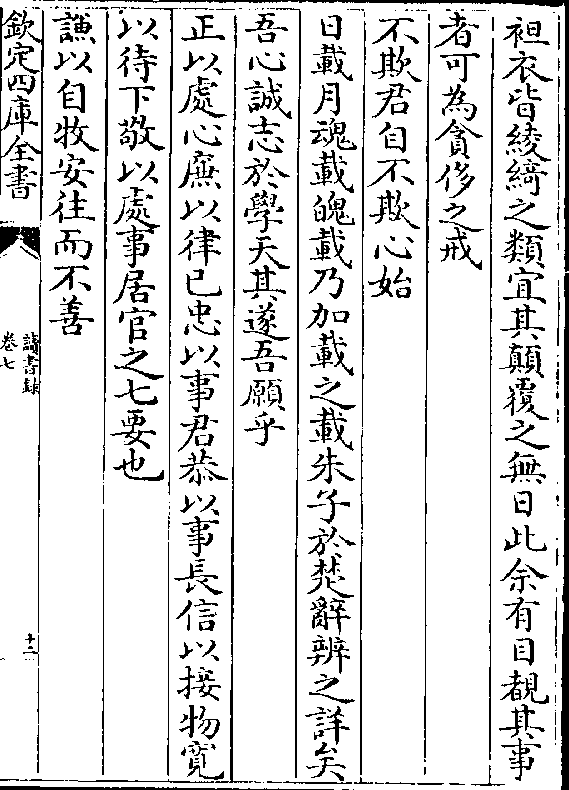 袒衣皆綾綺之類宜其顛覆之無日此余有目覩其事
者可為貪侈之戒
不欺君自不欺心始
日載月魂載魄載乃加載之載朱子於楚辭辨之詳矣
吾心誠志於學天其遂吾願乎
正以處心廉以律已忠以事君恭以事長信以接物寛
以待下敬以處事居官之七要也
謙以自牧安往而不善
欽定四庫全書
讀書録
卷七
十二